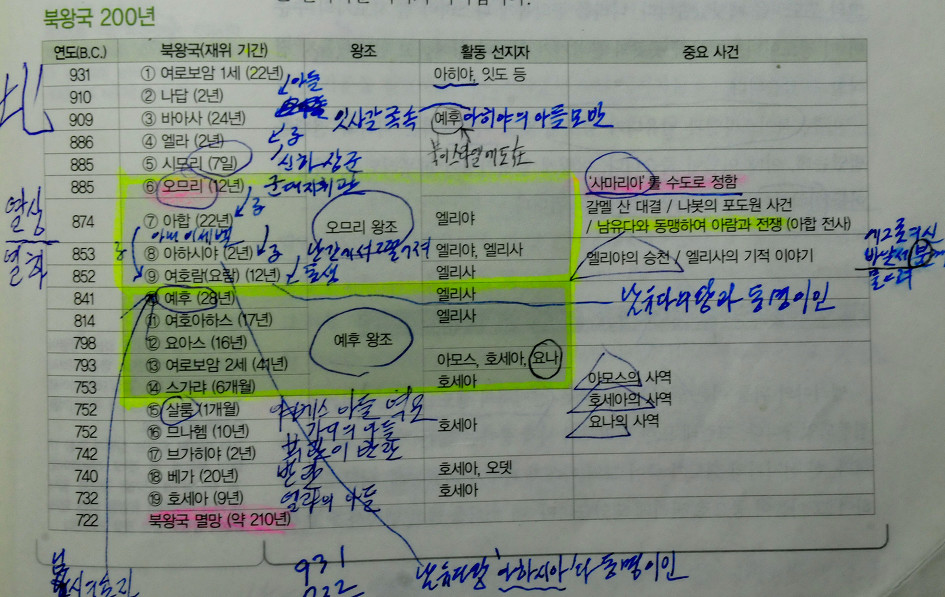 북왕국 200년
연도(B.C.) 북왕국(재위 기간) 왕조 활동 선지자 중요 사건
北
931 ① 여로보암 1세 (22년) 아히야, 잇도 등
아들
910 ② 나답 (2년)
909 ③ 바아사 (24년) 잇사갈 족속 예후 아히야의 아들 모반
886 ④ 엘라 (2년)
885 ⑤ 시므리 (7일) 신하 장군
885 ⑥ 오므리 (12년) 군대지휘관 '사마리아'를 수도로 정함
874 ⑦ 아합 (22년) 오므리 왕조 엘리야 갈멜 산 대결 / 나봇의 포도원 사건
/ 남유다와 동맹하여 아람과 전쟁 (아합 전사)
853 ⑧ 아하시야 (2년) 난간에서 떨어져 엘리야, 엘리사
엘리야의 승천 / 엘리사의 기적 이야기
852 ⑨ 여호람(요람) (12년) 동생 엘리사
841 ⑩ 예후 (28년) 엘리사 남유다의 왕과 동명이인
814 ⑪ 여호아하스 (17년) 예후 왕조 엘리사
798 ⑫ 요아스 (16년)
793 ⑬ 여로보암 2세 (41년) 아모스, 호세아, 요나
753 ⑭ 스가랴 (6개월) 호세아 아모스의 사역
752 ⑮ 살룸 (1개월) 야베스 아들 호세아의 사역
752 ⑯ 므나헴 (10년) 가디의 아들 호세아 요나의 사역
742 ⑰ 브가히야 (2년)
740 ⑱ 베가 (20년) 반란 호세아, 오뎃
732 ⑲ 호세아 (9년) 엘라의 아들 호세아
722 북왕국 멸망 (약 210년)
931
남유다왕 '아하시야'다 동명이인